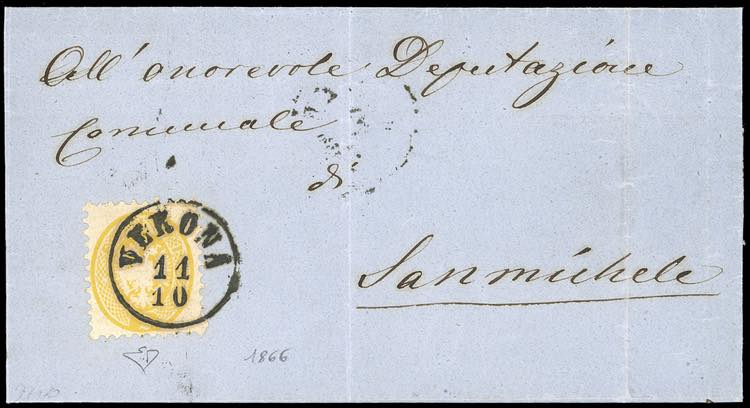 All' onorevole Deputazione
Comunale
di
Sanmichele
VERONA
11
10
1866